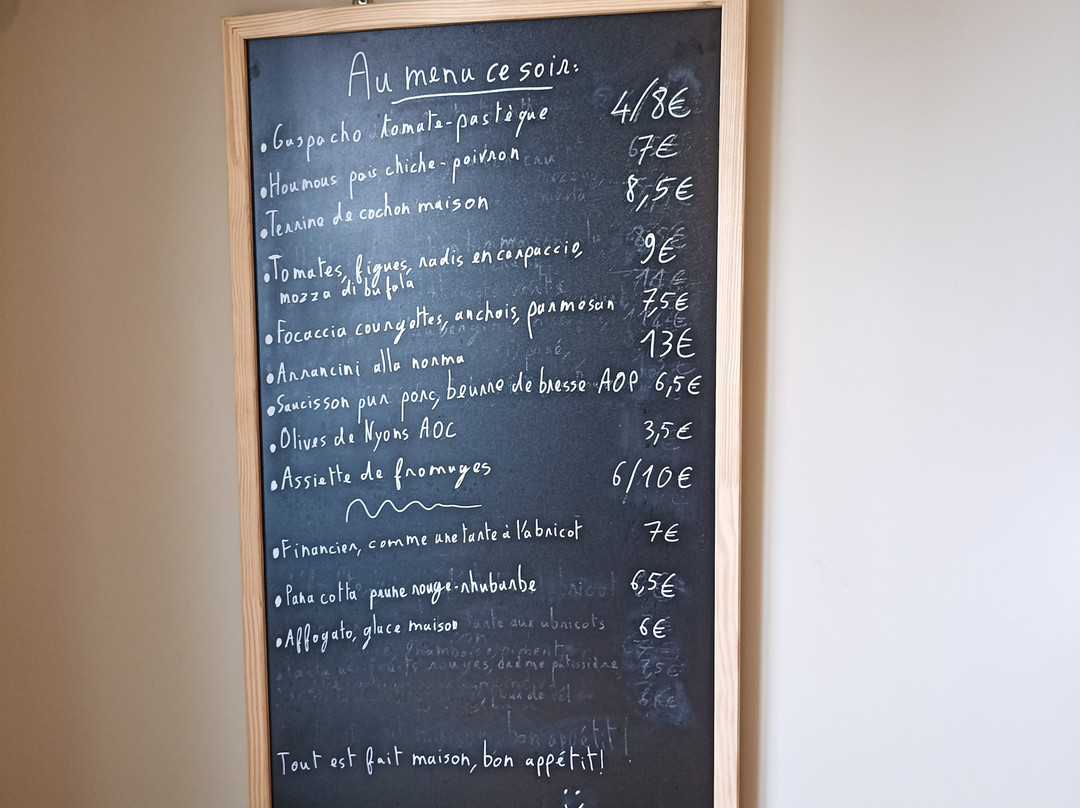 Au menu ce soir:
• Gaspacho tomate-pastèque 4/8€
• Houmous pois chiche-poivron 7€
• Terrine de cochon maison 8,5€
• Tomates, figues, radis en carpaccio, 9€
mozza di bufala
• Focaccia courgettes, anchois, parmesan 7,5€
• Arrancini alla norma 13€
• Saucisson pur porc, beurre de bresse AOP 6,5€
• Olives de Nyons AOC 3,5€
• Assiette de fromages 6/10€
• Financier, comme une tarte à l'abricot 7€
• Pana cotta prune rouge-rhubarbe 6,5€
• Affogato, glace maison 6€
Tout est fait maison, bon appétit!